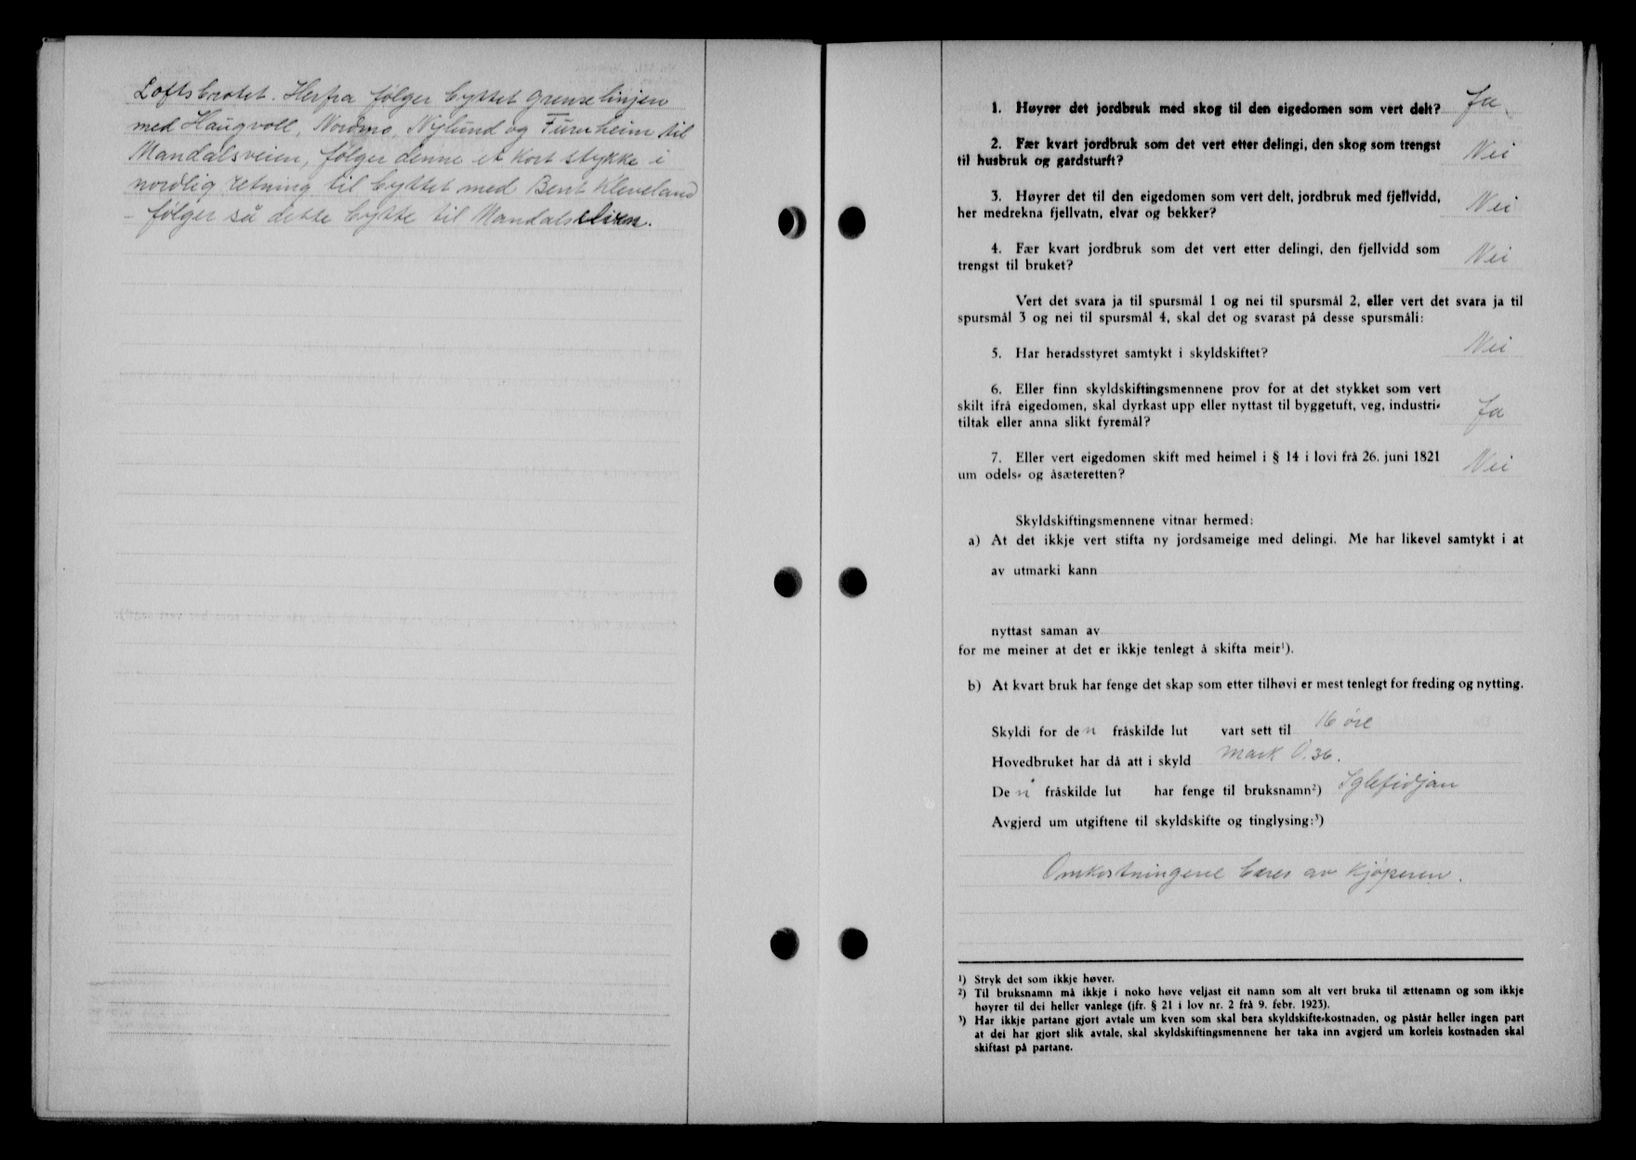 Loftsbrotet. Herfra følger byttet grenselinjen
med Haugvoll, Nordmo, Nylund og Furuheim til
Mandalsveien, følger denne et kort stykke i
nordlig retning til byttet med Bent Kleveland
– følger så dette bytte til Mandalselven.
1. Høyrer det jordbruk med skog til den eigedomen som vert delt? Ja
2. Fær kvart jordbruk som det vert etter delingi, den skog som trengst
til husbruk og gardsturft? Nei
3. Høyrer det til den eigedomen som vert delt, jordbruk med fjellvidd,
her medrekna fjellvatn, elvar og bekker? Nei
4. Fær kvart jordbruk som det vert etter delingi, den fjellvidd som
trengst til bruket? Nei
Vert det svara ja til spursmål 1 og nei til spursmål 2, eller vert det svara ja til
spursmål 3 og nei til spursmål 4, skal det og svarast på desse spursmåli:
5. Har heradsstyret samtykt i skyldskiftet? Nei
6. Eller finn skyldskiftingsmennene prov for at det stykket som vert
skilt ifrå eigedomen, skal dyrkast upp eller nyttast til byggetuft, veg, industri-
tiltak eller anna slikt fyremål? Ja
7. Eller vert eigedomen skift med heimel i § 14 i lovi frå 26. juni 1821
um odels- og åsæteretten? Nei
Skyldskiftingsmennene vitnar hermed:
a) At det ikkje vert stifta ny jordsameige med delingi. Me har likevel samtykt i at
av utmarki kann
nyttast saman av
for me meiner at det er ikkje tenlegt å skifta meir¹).
b) At kvart bruk har fenge det skap som etter tilhøvi er mest tenlegt for freding og nytting.
Skyldi for den fråskilde lut vart sett til 16 øre
Hovedbruket har då att i skyld mark 0.36.
Den fråskilde lut har fenge til bruksnamn²) Iglefidjan
Avgjerd um utgiftene til skyldskifte og tinglysing:³)
Omkostningene bæres av kjøperen.
¹) Stryk det som ikkje høver.
²) Til bruksnamn må ikkje i noko høve veljast eit namn som alt vert bruka til ættenamn og som ikkje
høyrer til dei heller vanlege (jfr. § 21 i lov nr. 2 frå 9. febr. 1923).
³) Har ikkje partane gjort avtale um kven som skal bera skyldskifte-kostnaden, og påstår heller ingen part
at dei har gjort slik avtale, skal skyldskiftingsmennene her taka inn avgjerd um korleis kostnaden skal
skiftast på partane.